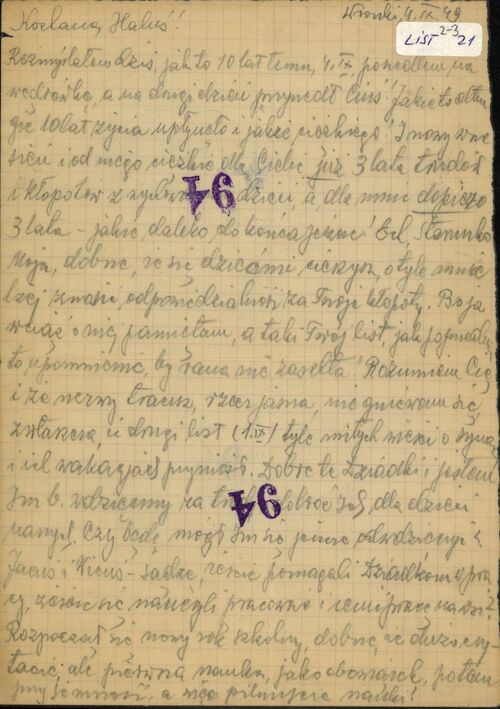 Wronki, 4.IX.49
LIST 2-3 21
Kochana Haluś!
Rozmyślałem dziś, jak to 10 lat temu, 4.IX poszedłem na
wędrówkę, a na drugi dzień przyszedł Ciuś! Jakie to długie
10 lat życia upłynęło i jakże ciężkiego! I nowy wrze
sień i od niego liczbę dla Ciebie już 3 lata trudów
i kłopotów z dzieci, a dla mnie dopiero
3 lata – jakże daleko do końca jeszcze! Ech,
moja, dobrze, że się dziećmi cieszysz, o tyle mnie
lżej znosić odpowiedzialność za Twoje kłopoty. Bo ja
wciąż o niej pamiętam, a taki Twój list, jak poprzedni
to upomnienie, by rana nie zaschła! Rozumiem Cię
i że nerwy tracisz, rzecz jasna, nie gniewam się,
zwłaszcza, że drugi list (1.IX) tyle miłych wieści o synach
i ich wakacjach przyniósł. Dobre te Dziadki i jestem
Im b. wdzięczny za dobroć Ich dla dzieci
naszych. Czy będę mógł Im się jeszcze odwdzięczyć?
Jacuś i Wicuś – sądzę, żeście pomagali Dziadkom w pra
cy, żeście się nauczyli pracować i cenić pracę na wsi?
Rozpoczął się nowy rok szkolny, dobrze, że dużo czy
tacie, ale pierwsza nauka, jako obowiązek, potem
przyjemność, a więc pilnujcie nauki!
94
94